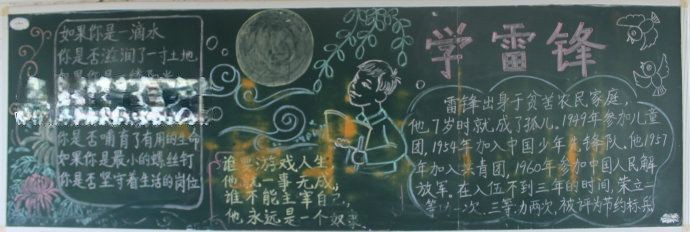 如果你是一滴水
你是否滋润了一寸土地
你是否哺育了有用的生命
如果你是最小的螺丝钉
你是否坚守着生活的岗位
谁 游戏人生
他 一事无成；
谁不能主宰自己，
他，永远是一个奴
学雷锋
雷锋出身于贫苦农民家庭，
他7岁时就成了孤儿。1949年参加儿童
团，1954年加入中国少年先锋队。他1957
年加入共青团，1960年参加中国人民解
放军。在入伍不到三年的时间，荣立二
等 一次、三等功两次，被评为节约标兵